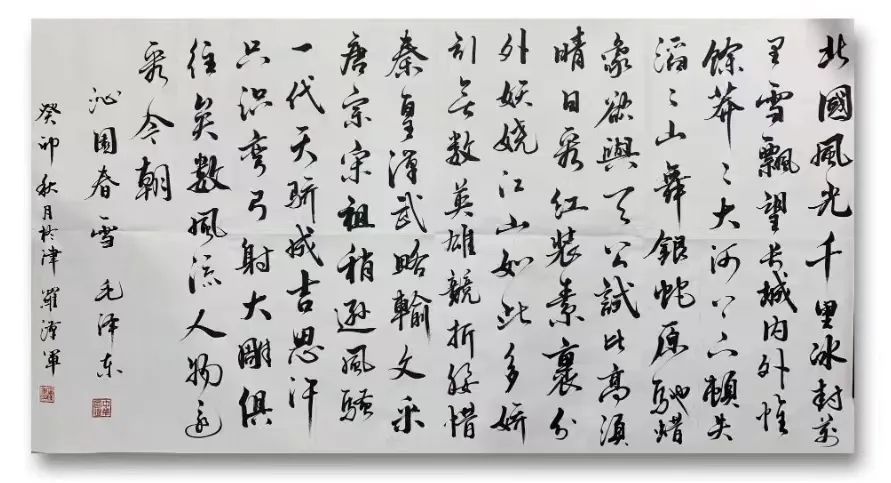 北國風光千里冰封萬
里雪飄望长城内外惟
馀莽〻大河上下頓失
滔〻山舞銀蛇原馳蜡
象欲與天公試比高須
晴日看红装素裹分
外妖娆江山如此多娇
引無数英雄競折腰惜
秦皇漢武略輸文采
唐宗宋祖稍逊風騷
一代天骄成吉思汗
只识弯弓射大雕俱
往矣数風流人物还
看今朝
沁園春雪 毛泽东
癸卯秋月於津